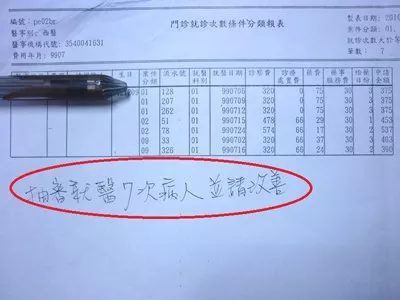 編號：pe02br
門診就診次數條件分類報表
製表日期：2010
醫事別：西醫
條件分類：01.
醫事機構代號：3540041631
就診次數大於等
費用年月：9907
筆數： 7
生日 案件分類 流水號 就醫科別 就醫日期 診察費 診療處置費 藥費 藥事服務費 給藥日份 申請金額
09 01 128 01 990705 320 0 75 30 3 375
01 207 01 990709 320 0 75 30 3 375
01 262 01 990712 320 0 75 30 3 375
02 51 01 990715 478 66 29 30 1 453
02 78 01 990724 574 66 17 30 2 537
09 33 01 990704 320 66 37 30 3 403
09 326 01 990716 320 66 24 30 2 390
抽審就醫7次病人並請改善